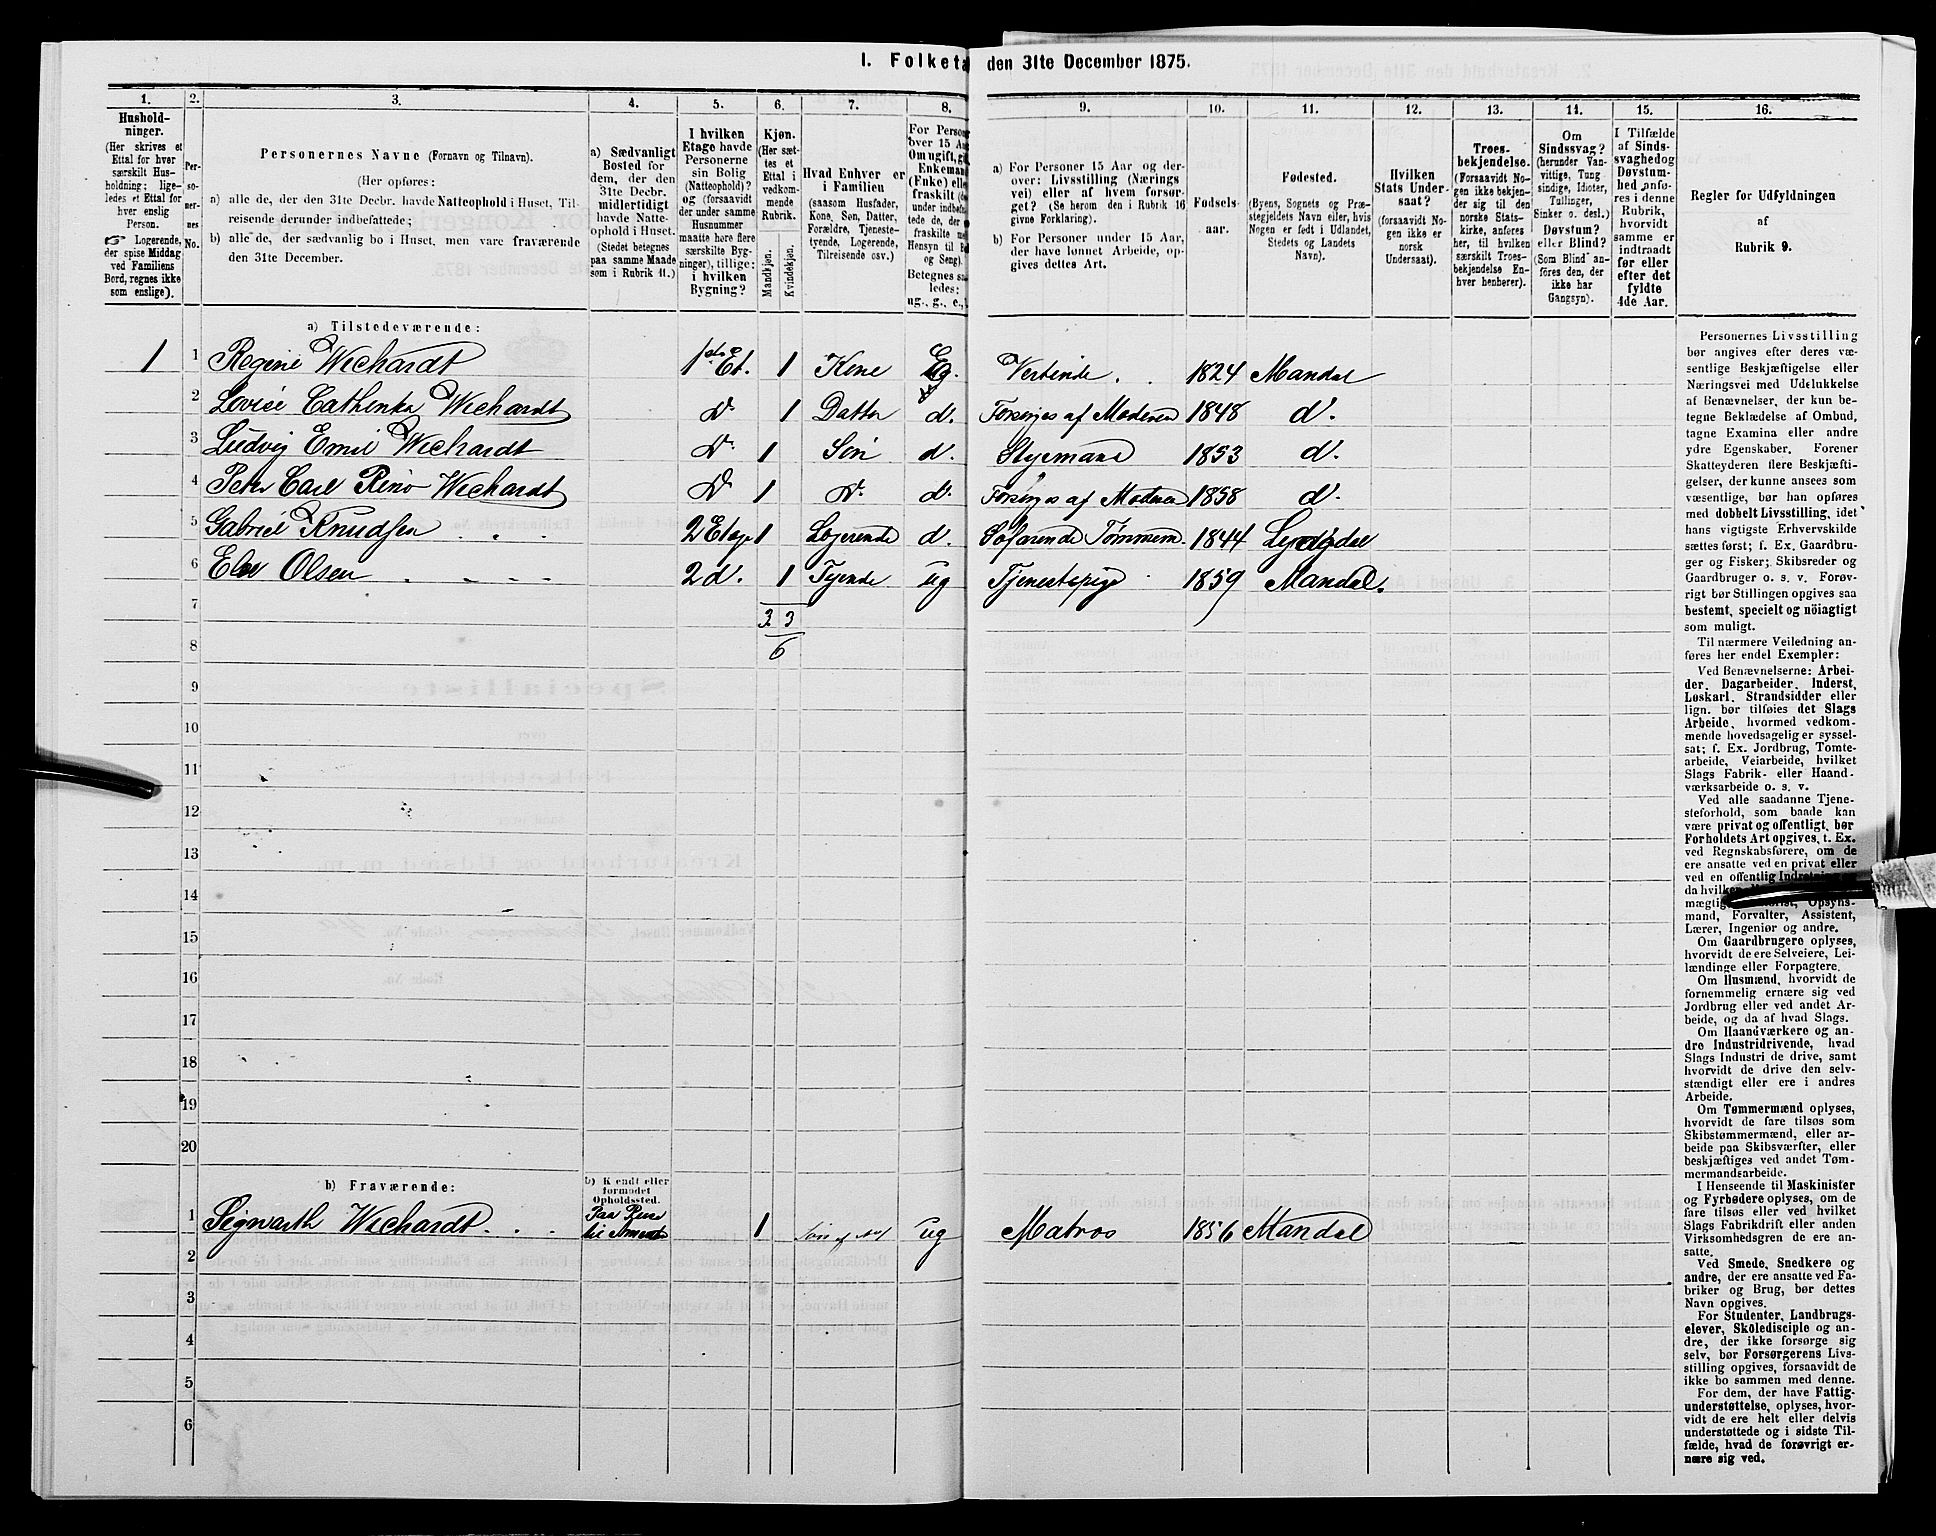 I. Folketæ den 31te December 1875.
1. 2. 3. 4. 5. 6. 7. 8. 9. 10. 11. 12. 13. 14. 15. 16.
Hushold-
ninger.
(Her skrives et
Ettal for hver
særskilt Hus-
holdning; lige-
ledes et Ettal for
hver enslig
Person.
Logerende,
der spise Middag
ved Familiens
Bord, regnes ikke
som enslige).
Per-
so-
ner-
nes
No.
Personernes Navne (Fornavn og Tilnavn).
(Her opføres:
a) alle de, der den 31te Decbr. havde Natteophold i Huset, Til-
reisende derunder indbefattede;
b) alle de, der sædvanlig bo i Huset, men vare fraværende
den 31te December.
a) Sædvanligt
Bosted for
dem, der den
31te Decbr.
midlertidigt
havde Natte-
ophold i Huset.
(Stedet betegnes
paa samme Maade
som i Rubrik 11.)
I hvilken
Etage havde
Personerne
sin Bolig
(Natteophold)?
og (forsaavidt
der under samme
Husnummer
maatte høre flere
særskilte Byg-
ninger), tillige:
i hvilken
Bygning?
Kjøn.
(Her sæt-
tes et
Ettal i
vedkom-
mende
Rubrik.
Mandkjøn.
Kvindekjøn.
Hvad Enhver er
i Familien
(saasom Husfader,
Kone, Søn, Datter,
Forældre, Tjeneste-
tyende, Logerende,
Tilreisende osv.)
For Perso
over 15 Aa
Om ugift, gi
Enkeman
(Fnke) elle
fraskilt (
under indbefa
tede de, der e
fraskilte m
Hensyn til B
og Seng).
Betegnes sa
ledes:
ug., g., e.,
a) For Personer 15 Aar og der-
over: Livsstilling (Nærings
vei) eller af hvem forsør-
get? (Se herom den i Rubrik 16
givne Forklaring).
b) For Personer under 15 Aar,
der have lønnet Arbeide, op-
gives dettes Art.
Fødsels-
aar.
Fødested.
(Byens, Sognets og Præ-
stegjeldets Navn eller, hvis
Nogen er født i Udlandet,
Stedets og Landets
Navn).
Hvilken
Stats Under-
saat?
(forsaavidt No-
gen ikke er
norsk
Undersaat).
Troes-
bekjendelse.
(Forsaavidt No-
gen ikke bekjen-
der sig til den
norske Stats-
kirke, anføres
her, til hvilken
særskilt Troes-
bekjendelse En-
hver henhører).
Om
Sindssvag?
(herunder Van-
vittige, Tung
sindige, Idioter,
Tullinger,
Sinker o. desl.)
Døvstum?
eller Blind?
(Som Blind an-
føres den, der
ikke har
Gangsyn).
I Tilfælde
af Sinds-
svaghed og
Døvstum-
hed anfø-
res i denne
Rubrik,
hvorvidt
samme er
indtraadt
før eller
efter det
fyldte
4de Aar.
Regler for Udfyldningen
af
Rubrik 9.
a) Tilstedeværende:
1 1 Regine Wichardt 1ste Et. 1 Kone Eg. Vertinde 1824 Mandal
2 Lovise Cathinka Wichardt Do 1 Datter d. Forsørges af Moderen 1848 do.
3 Ludvig Emil Wichardt Do 1 Søn d. Styrmand 1853 do.
4 Peter Carl Rino Wichardt Do 1 Do. d. Forsørges af Moderen 1858 do
5 Gabriel Knudsen 2 Etage 1 Logerende d. Søfarende Tømmerm 1844 Lyngdal
6 Olsen 2 d. 1 Tyende ug Tjenestepige 1859 Mandal.
7 3. 3
8 6
9
10
11
12
13
14
15
16
17
18
19
20
b) Fraværende:
b) Kjendt eller
formodet
Opholdssted.
1 Sigwarth Wichardt Paa Reise
til 1 Søn af No 1 ug Matros 1856 Mandal
2
3
4
5
6
Personernes Livsstilling
bør angives efter deres væ-
sentlige Beskjæftigelse eller
Næringsvei med Udelukkelse
af Benævnelser, der kun be-
tegne Beklædelse af Ombud,
tagne Examina eller andre
ydre Egenskaber. Forener
Skatteyderen flere Beskjæfti-
gelser, der kunne ansees som
væsentlige, bør han opføres
med dobbelt Livsstilling, idet
hans vigtigste Erhvervskilde
sættes først; f. Ex. Gaardbru-
ger og Fisker; Skibsreder og
Gaardbruger o. s. v. Forøv-
rigt bør Stillingen opgives saa
bestemt, specielt og nöiagtigt
som muligt.
Til nærmere Veiledning an-
føres her endel Exempler:
Ved Benævnelserne: Arbei-
der, Dagarbeider, Inderst,
Løskarl, Strandsidder eller
lign. bør tilføies det Slags
Arbeide, hvormed vedkom-
mende hovedsagelig er syssel-
sat; f. Ex. Jordbrug, Tomte-
arbeide, Veiarbeide, hvilket
Slags Fabrik- eller Haand-
værksarbeide o. s. v.
Ved alle saadanne Tjene-
steforhold, som baade kan
være privat og offentligt, bør
Forholdets Art opgives, t. Ex.
ved Regnskabsførere, om de
ere ansatte ved en privat eller
ved en offentlig
da
Opsyns-
mand, Forvalter, Assistent,
Lærer, Ingeniør og andre.
Om Gaardbrugere oplyses,
hvorvidt de ere Selveiere, Lei-
lændinge eller Forpagtere.
Om Husmænd, hvorvidt de
fornemmelig ernære sig ved
Jordbrug eller ved andet Ar-
beide, og da af hvad Slags.
Om Haandværkere og an-
dre Industridrivende, hvad
Slags Industri de drive, samt
hvorvidt de drive den selv-
stændigt eller ere i andres
Arbeide.
Om Tømmermænd oplyses,
hvorvidt de fare tilsøs som
Skibstømmermænd, eller ar-
beide paa Skibsværfter, eller
beskjæftiges ved andet Tøm-
mermandsarbeide.
I Henseende til Maskinister
og Fyrbødere oplyses, om de
fare tilsøs eller ved hvilket
Slags Fabrikdrift eller anden
Virksomhedsgren de ere an-
satte.
Ved Smede, Snedkere og
andre, der ere ansatte ved Fa-
briker og Brug, bør dettes
Navn opgives.
For Studenter, Landbrugs-
elever, Skoledisciple og an-
dre, der ikke forsørge sig
selv, bør Forsørgerens Livs-
stilling opgives, forsaavidt de
ikke bo sammen med denne.
For dem, der have Fattig-
understøttelse, oplyses, hvor-
vidt de ere helt eller delvis
understøttede og i sidste Til-
fælde, hvad de forøvrigt er-
nære sig ved.